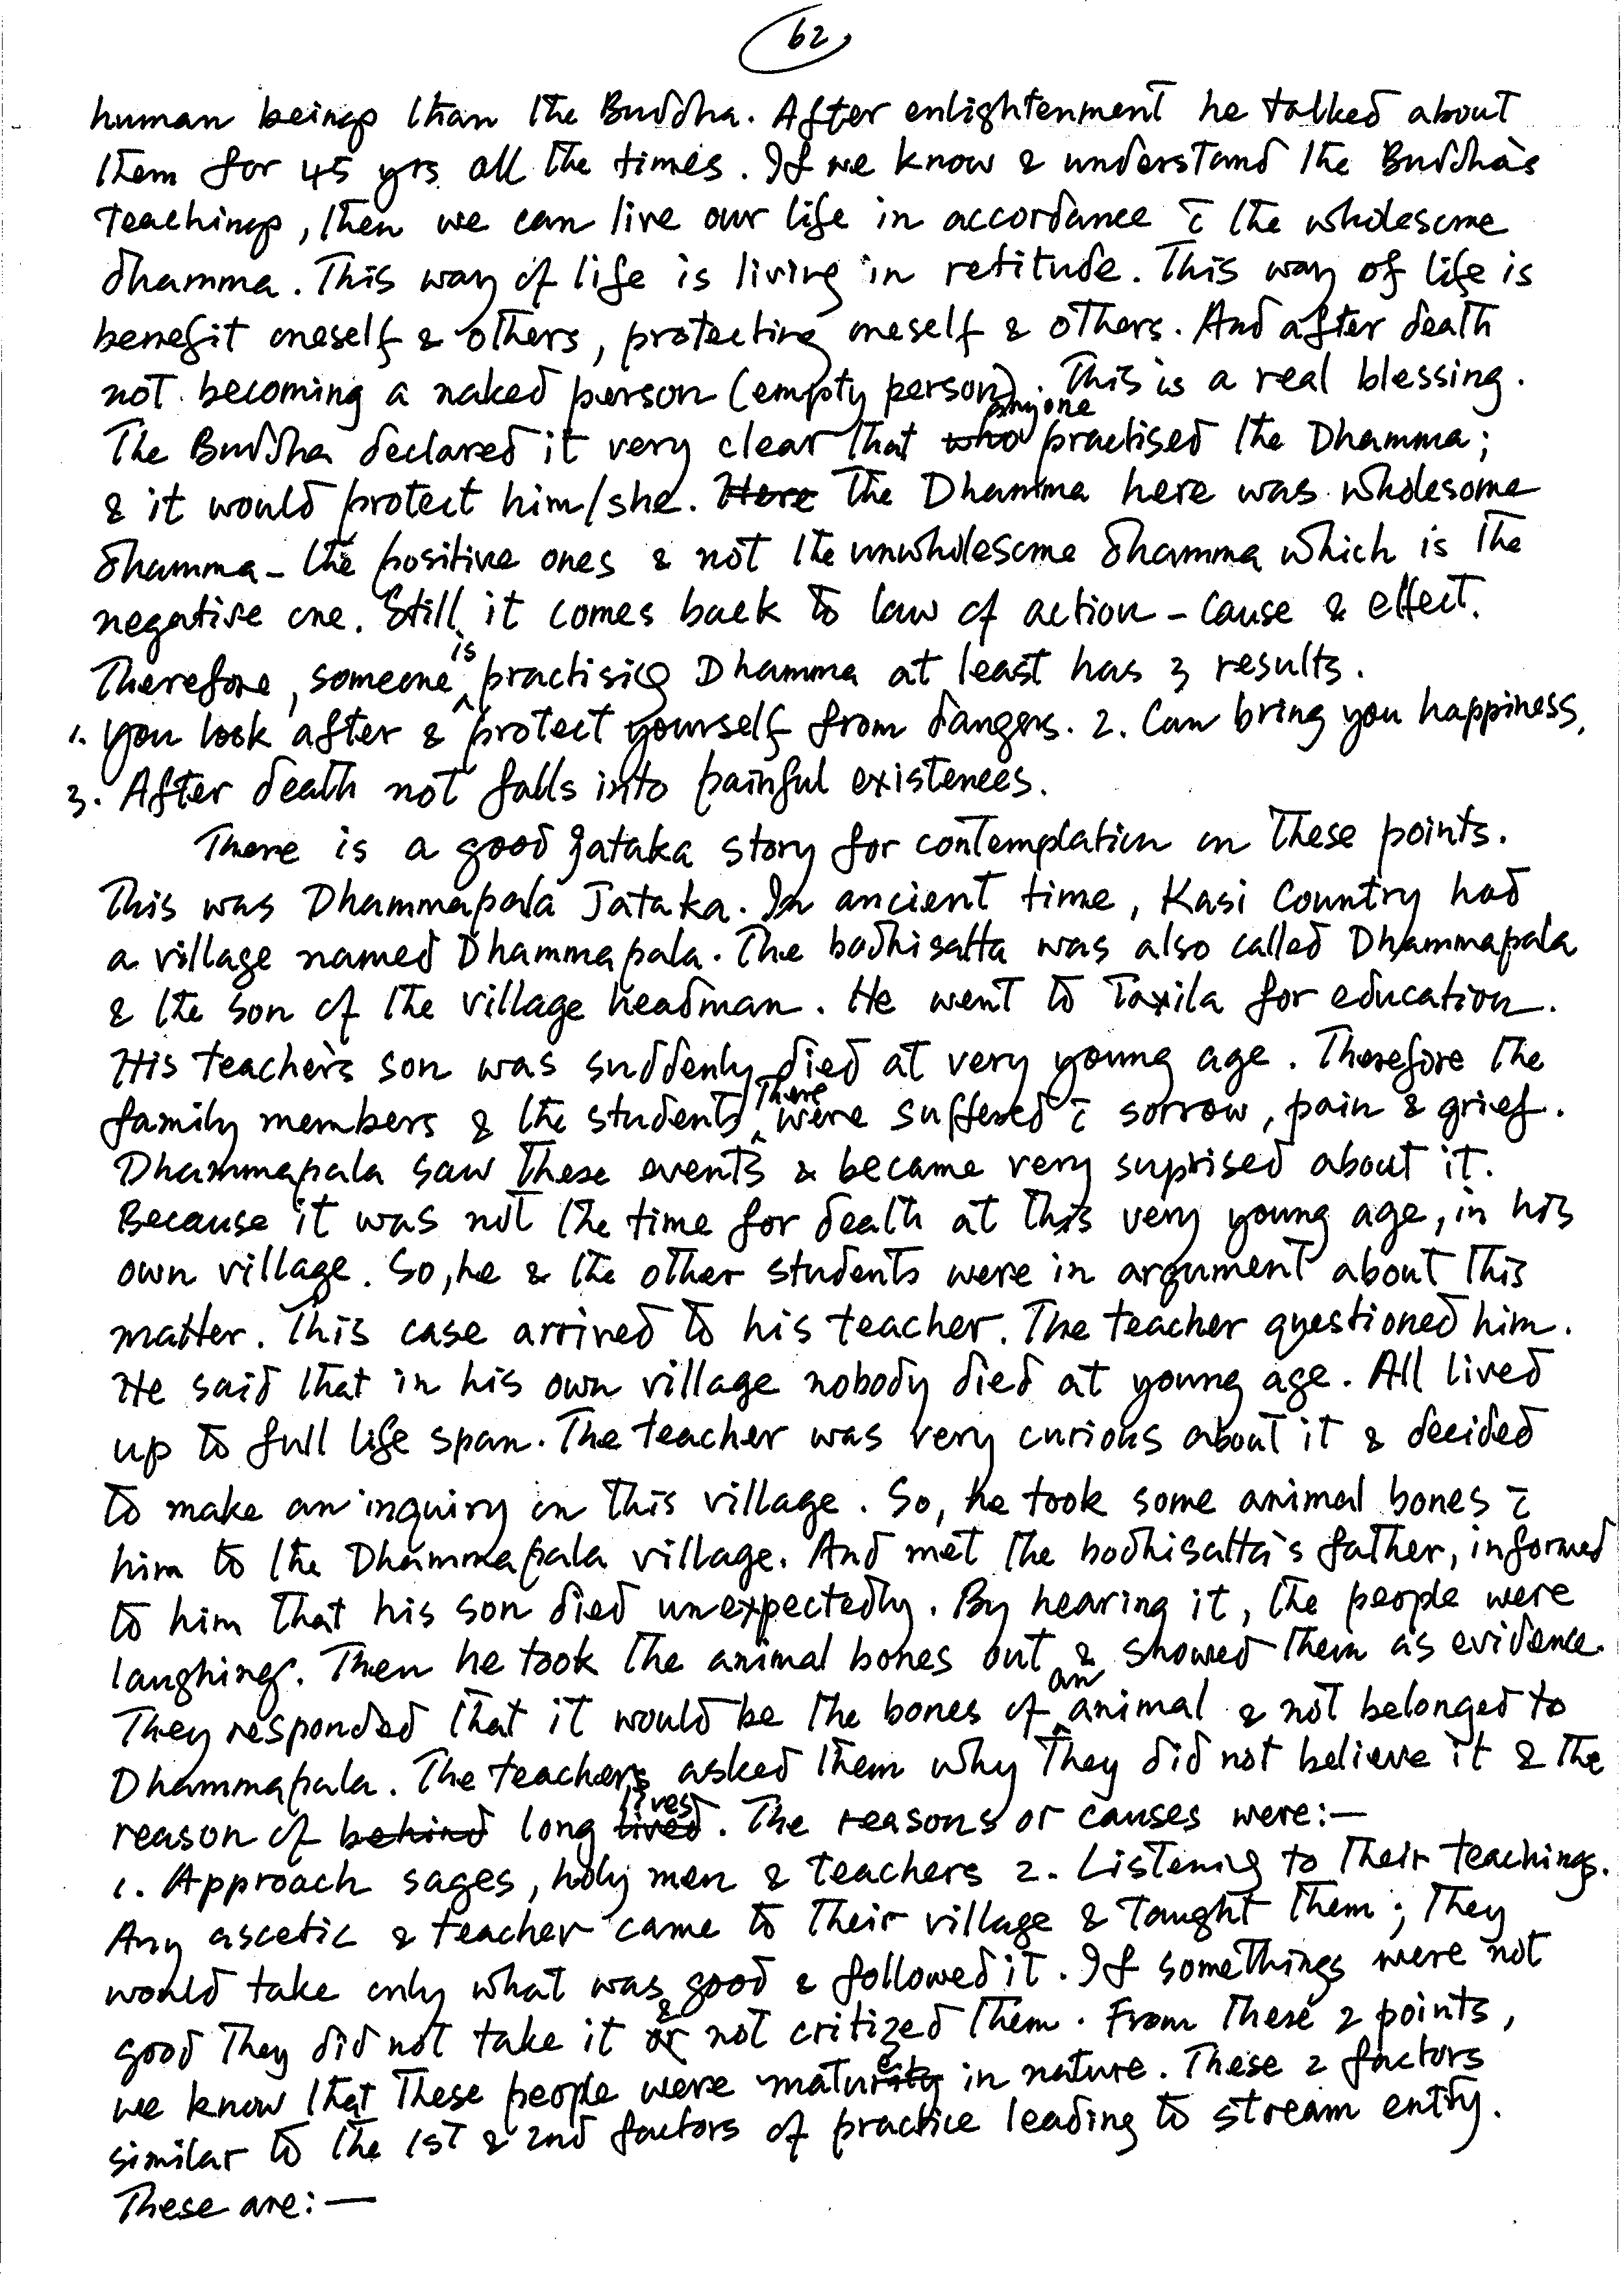 62
human beings than the Buddha. After enlightenment he talked about
them for 45 yrs all the times. If we know & understand the Buddha's
teachings, then we can live our life in accordance c̄ the wholesome
dhamma. This way of life is living in retitude. This way of life is
benefit oneself & others, protecting oneself & others. And after death
not becoming a naked person (empty person). This is a real blessing.
The Buddha declared it very clear that anyone practised the Dhamma;
& it would protect him/she. The Dhamma here was wholesome
dhamma - the positive ones & not the unwholesome dhamma which is the
negative one. Still, it comes back to law of action - cause & effect.
Therefore, someone is practising Dhamma at least has 3 results.
1. You look after & protect yourself from dangers. 2. Can bring you happiness.
3. After death not falls into painful existences.
There is a good Jataka story for contemplation on these points.
This was Dhammapala Jataka. In ancient time, Kasi Country had
a village named Dhammapala. The bodhisatta was also called Dhammapala
& the son of the village headman. He went to Taxila for education.
His teacher's son was suddenly died at very young age. Therefore the
family members & the students there were suffered c̄ sorrow, pain & grief.
Dhammapala saw these events & became very suprised about it.
Because it was not the time for death at this very young age, in his
own village. So, he & the other students were in argument about this
matter. This case arrived to his teacher. The teacher questioned him.
He said that in his own village nobody died at young age. All lived
up to full life span. The teacher was very curious about it & decided
to make an inquiry on this village. So, he took some animal bones c̄
him to the Dhammapala village. And met the bodhisatta's father, informed
to him that his son died unexpectedly. By hearing it, the people were
laughing. Then he took the animal bones out & showed them as evidence.
They responded that it would be the bones of an animal & not belonged to
Dhammapala. The teachers asked them why they did not believe it & the
reason of long lives. The reasons or causes were:—
1. Approach sages, holy men & teachers 2. Listening to their teachings.
Any ascetic & teacher came to their village & taught them; they
would take only what was good & followed it. If somethings were not
good they did not take it & not critized them. From these 2 points,
we know that these people were mature in nature. These 2 factors
similar to the 1st & 2nd factors of practice leading to stream entry.
These are:—